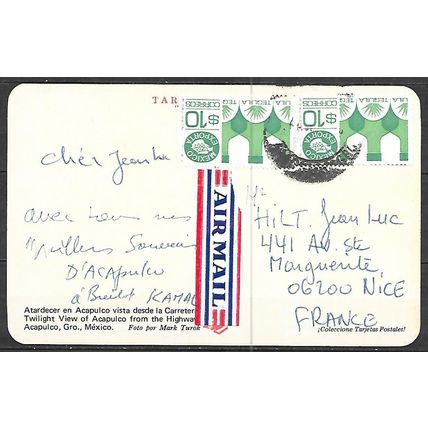 TAR
$10
CORREOS
MEXICO EXPORTA
TEQUILA
TEQUILA
$10
CORREOS
MEXICO EXPORTA
TEQUILA
TEQUILA
Chér Jean Luc
avec tous nos
meilleurs Souvenirs
D'ACAPULCO
à Bientôt KAMAL
AIR MAIL
HILT. Jean Luc
441 AV. Ste
Marguerite,
06200 NICE
FRANCE
Atardecer en Acapulco vista desde la Carreter
Twilight View of Acapulco from the Highway
Acapulco, Gro., México.
Foto por Mark Turok
¡Coleccione Tarjetas Postales!